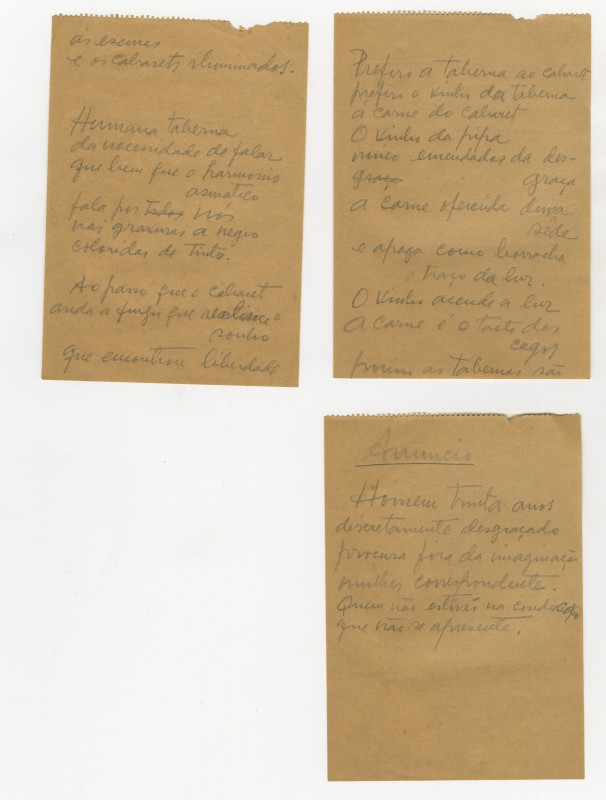 às escuras
e os cabarets iluminados.
Humana taberna
da necessidade de falar
que bem que o harmonio
asmatico
fala por todos nós
nas gravuras a negro
coloridas de tinto.
Ao passo que o cabaret
anda a fingir que realisou o
sonho
que encontrou liberdade
Prefiro a taberna ao cabaret
prefiro o vinho da taberna
à carne do cabaret
O vinho da pipa
unico emendados da des-
graça graça
a carne oferecida deixa
sêde
e apaga como borracha
o traço da luz.
O vinho acende a luz
A carne é o tacto dos
cegos
porém as tabernas são
Anuncio
Homem trinta anos
discretamente desgraçado
procura fora da imaginação
mulher correspondente.
Quem não estiver na condição
que não se apresente.